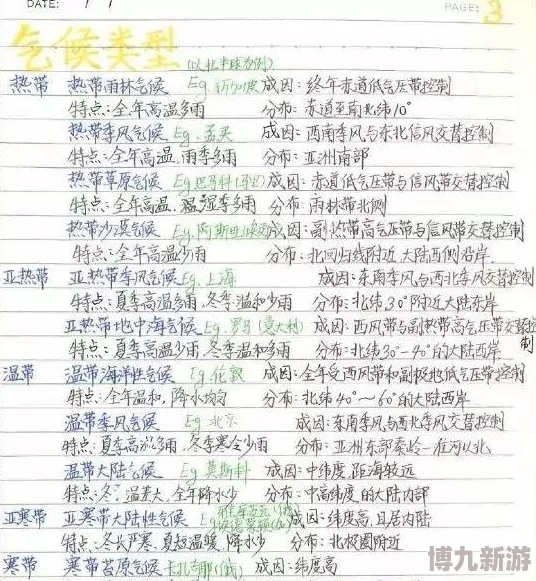 DATE: / /
PAGE: 3
气候类型 (以北半球为例)
热带 热带雨林气候 Eg 新加坡 成因:终年赤道低气压带控制
特点:全年高温多雨 分布:赤道至南北纬10°
热带季风气候 Eg.孟买 成因:西南季风与东北信风交替控制
特点:全年高温,雨季多雨 分布:亚洲南部
热带草原气候 Eg 巴马科(马里) 成因:赤道低气压带与信风带交替控制
特点:全年高温,湿季多雨 分布:雨林带北侧
热带沙漠气候 Eg. 成因:副热带高气压带与信风带交替控制
特点:全年高温少雨 分布:北回归线附近,大陆西侧沿岸.
亚热带 亚热带季风气候 Eg.上海 成因:东南季风与西北季风交替控制
特点:夏季高温多雨,冬季温和少雨 分布:北纬30°附近大陆东岸
亚热带地中海气候 Eg.罗马(意大利) 成因:西风带与副热带高气压带交替控制
特点:夏季高温少雨,冬季温和多雨 分布:北纬30°-40°的大陆西岸
温带 温带海洋性气候 Eg 伦敦 成因:全年受西风带和副极地低气压带控制
特点:全年温和,降水均匀 分布:北纬40°~60°的大陆西岸
温带季风气候 Eg 北京 成因:东南季风与西北季风交替控制
特点:夏季高温多雨,冬季寒冷少雨 分布:亚洲东部秦岭-淮河以北
温带大陆气候 Eg 莫斯科 成因:中纬度,距海较远
特点:冬 温差大,全年降水少 分布:中高纬度的大陆内部
亚寒带 亚寒带大陆性气候 Eg 成因:纬度高,且居内陆
特点:冬长严寒,夏短温暖,降水少 分布:北极圈附近
寒带 寒带苔原气候 成因:纬度高
博九新游